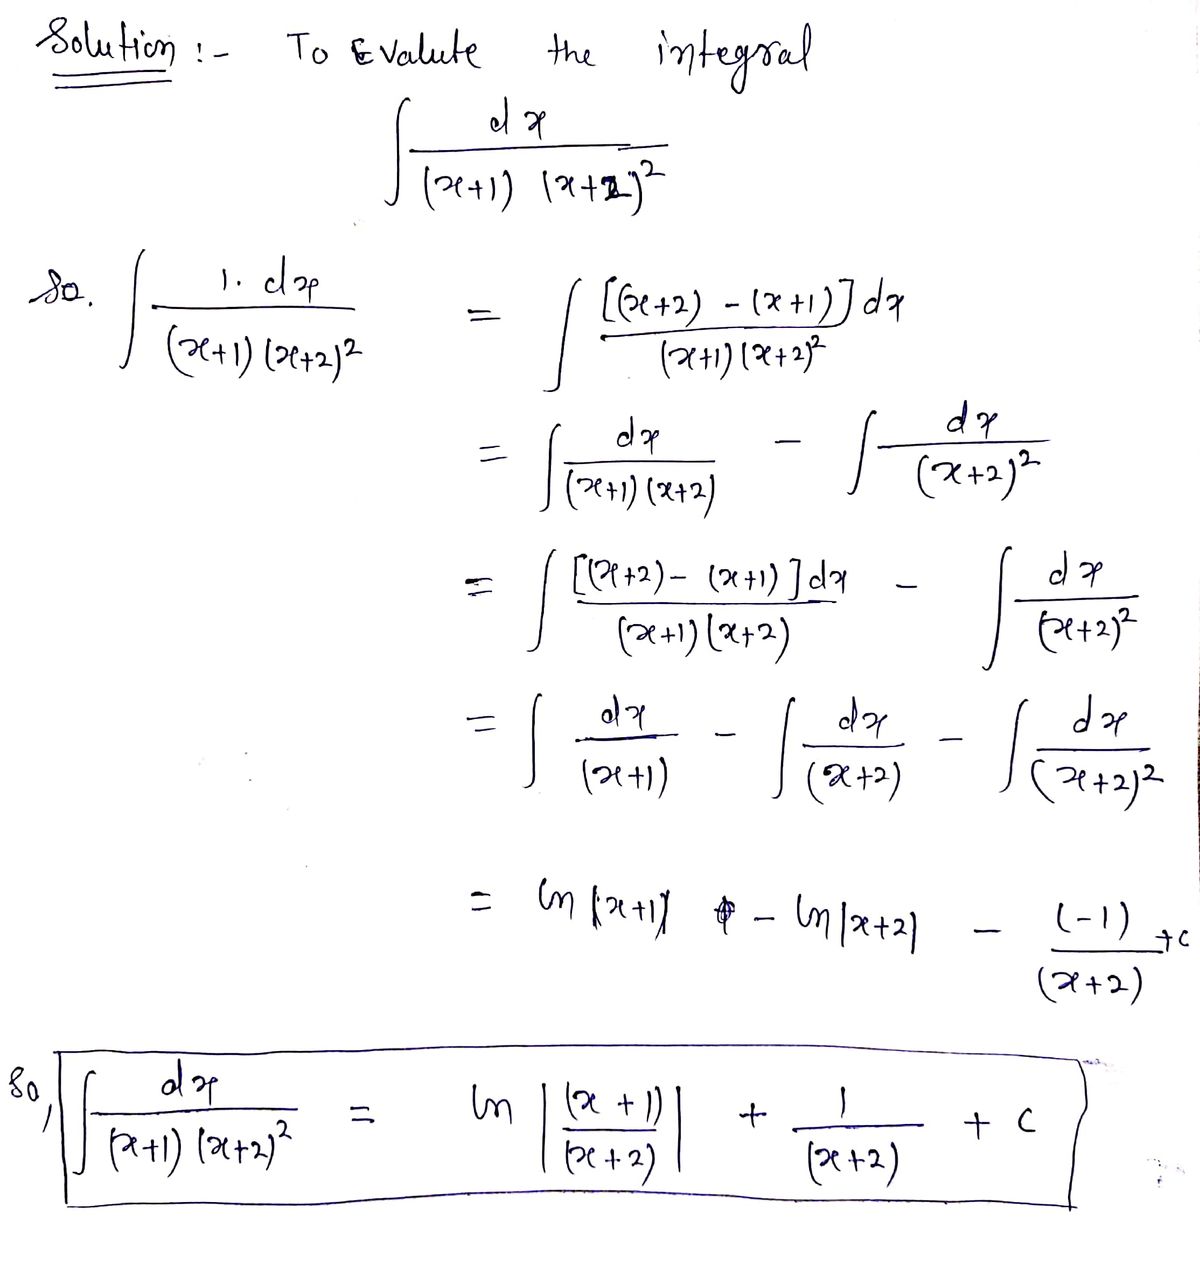 Solution :- To Evalute the integral
∫ dx / (x+1) (x+2)²
So. ∫ 1. dx / (x+1) (x+2)² = ∫ [(x+2) - (x+1)] dx / (x+1) (x+2)²
= ∫ dx / (x+1) (x+2) - ∫ dx / (x+2)²
= ∫ [(x+2) - (x+1)] dx / (x+1) (x+2) - ∫ dx / (x+2)²
= ∫ dx / (x+1) - ∫ dx / (x+2) - ∫ dx / (x+2)²
= ln |x+1| - ln |x+2| - (-1) / (x+2) + c
So, ∫ dx / (x+1) (x+2)² = ln | (x+1) / (x+2) | + 1 / (x+2) + c